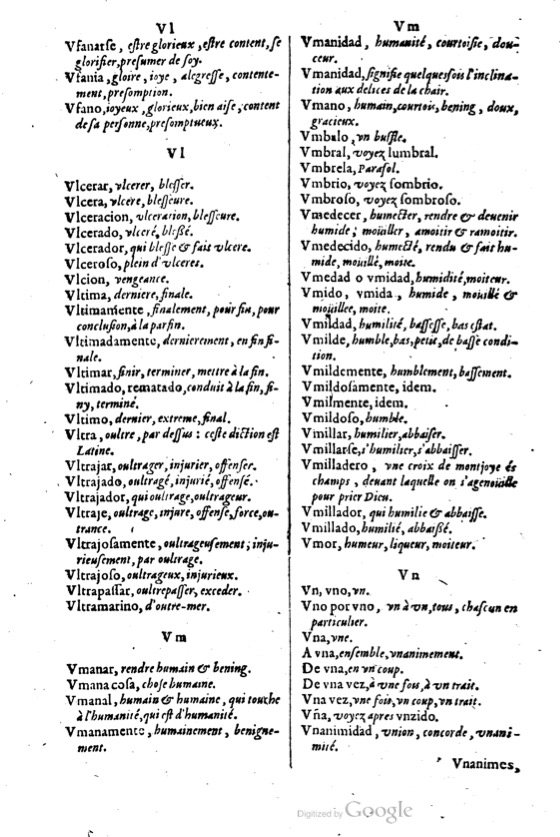 Vl
Vfanarſe, eſtre glorieux, eſtre content, ſe
glorifier, preſumer de ſoy.
Vfania, gloire, ioye, alegreſſe, contente-
ment, preſomption.
Vfano, ioyeux, glorieux, bien aiſe, content
de ſa perſonne, preſomptueux.
Vl
Vlcerar, vlcerer, bleſſer.
Vlcera, vlcere, bleſſeure.
Vlceracion, vlceration, bleſſeure.
Vlcerado, vlceré, bleßé.
Vlcerador, qui bleſſe & fait vlcere.
Vlceroſo, plein d'vlceres.
Vlcion, vengeance.
Vltima, derniere, finale.
Vltimamente, finalement, pour fin, pour
concluſion, à la par fin.
Vltimadamente, dernierement, en fin fi-
nale.
Vltimar, finir, terminer, mettre à la fin.
Vltimado, rematado, conduit à la fin, fi-
ny, terminé.
Vltimo, dernier, extreme, final.
Vltra, oultre, par deſſus : ceſte diction eſt
Latine.
Vltrajar, oultrager, iniurier, offenſer.
Vltrajado, oultragé, iniurié, offenſé.
Vltrajador, qui oultrage, oultrageur.
Vltraje, oultrage, iniure, offenſe, force, ou-
trance.
Vltrajoſamente, oultrageuſement; iniu-
rieuſement, par oultrage.
Vltrajoſo, oultrageux, iniurieux.
Vltrapaſſar, oultrepaſſer, exceder.
Vltramarino, d'outre-mer.
Vm
Vmanar, rendre humain & bening.
Vmana coſa, choſe humaine.
Vmanal, humain & humaine, qui touche
à l'humanité, qui eſt d'humanité.
Vmanamente, humainement, benigne-
ment.
Vm
Vmanidad, humanité, courtoiſie, dou-
ceur.
Vmanidad, ſignifie quelquesfois l'inclina-
tion aux delices de la chair.
Vmano, humain, courtois, bening, doux,
gracieux.
Vmbalo, vn buffle.
Vmbral, voyez lumbral.
Vmbrela, Paraſol.
Vmbrio, voyez ſombrio.
Vmbroſo, voyez ſombroſo.
Vmedecer, humecter, rendre & deuenir
humide; moüiller, amoitir & ramoitir.
Vmedecido, humecté, rendu & fait hu-
mide, moüillé, moite.
Vmedad o vmidad, humidité, moiteur.
Vmido, vmida, humide, moüillé &
moüillee, moite.
Vmildad, humilité, baſſeſſe, bas eſtat.
Vmilde, humble, bas, petit, de baſſe condi-
tion.
Vmildemente, humblement, baſſement.
Vmildoſamente, idem.
Vmilmente, idem.
Vmildoſo, humble.
Vmillar, humilier, abbaiſer.
Vmillarſe, s'humilier, s'abbaiſſer.
Vmilladero, vne croix de montjoye és
champs, deuant laquelle on s'agenoüille
pour prier Dieu.
Vmillador, qui humilie & abbaiſſe.
Vmillado, humilié, abbaißé.
Vmor, humeur, liqueur, moiteur.
Vn
Vn, vno, vn.
Vno por vno, vn à vn, tous, chaſcun en
particulier.
Vna, vne.
A vna, enſemble, vnanimement.
De vna, en vn coup.
De vna vez, à vne fois, à vn trait.
Vna vez, vne fois, vn coup, vn trait.
Vña, voyez apres vnzido.
Vnanimidad, vnion, concorde, vnani-
mité.
Vnanimes,
Digitized by Google